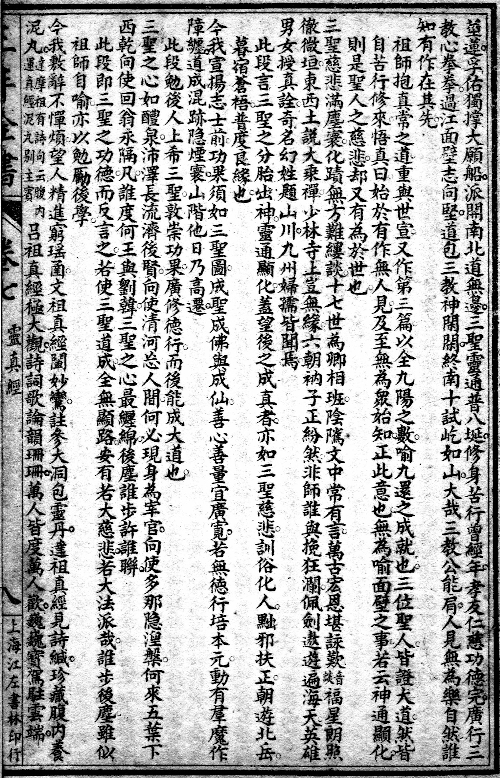 莖蓮孚佑獨撐大願船派闢南北道無邊三聖靈通普八埏修身苦行曾經年孝友仁慈功德完廣行三
教心拳拳過江面壁志向堅道包三教神閑閑終南十試屹如山大哉三教公能肩人見無為樂自然誰
知有作在其先
祖師抱真常之道重與世宣又作第三篇以全九陽之數喻九還之成就也三位聖人皆證大道然皆
自苦行修來悟真曰始於有作無人見及至無為眾始知正此意也無為喻面壁之事若云神通顯化
則是聖人之慈悲却又有為於世也
三聖慈悲滿塵寰化蹟無方難縷談十七世為卿相班陰隲文中常有言萬古宏恩堪詠歎福星朗照
徹微垣東西土說大乘禪少林寺上豈無緣六朝衲子正紛然非師誰與挽狂瀾佩劍遨遊遍海天英雄
男女授真詮奇名幻姓題山川九州婦孺皆聞焉
此段言三聖之分胎出神靈通顯化蓋望後之成真者亦如三聖慈悲訓俗化人黜邪扶正朝遊北岳
暮宿蒼梧普度良緣也
今我宣揚志士前功果須如三聖圖成聖成佛與成仙善心善量宜廣寬若無德行培本元動有羣魔作
障纏道成混跡隱煙寰山階他日乃高遷
此段勉後人上希三聖敦崇功果廣修德行而後能成大道也
三聖之心如醴泉沛澤長流濟後賢向使清河忘人間何必現身為宰官向使多那隱涅槃何來五葉下
西乾向使回翁永隔凡誰度何王與劉韓三聖之心最纏綿後塵誰步許誰聯
此段即三聖之功德而反言之若使三聖道成全無顯路安有若大慈悲若大法派哉誰步後塵雖似
祖師自喻亦以勉勵後學
今我救辭不憚煩望人精進窮瑤函文祖真經闡妙鸞註參大洞包靈丹達祖真經見詩緘珍藏腹內養
泥丸呂祖真經極大觀詩詞歌論韻珊珊萬人皆度萬人歡巍巍寶駕駐雲端
卷七
靈真經
八
上海江左書林印行